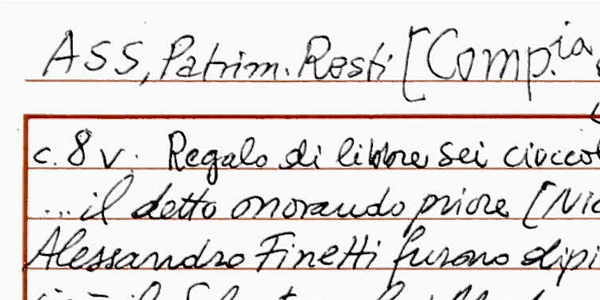 ASS, Patrim. Resti [Comp.ia
c. 8 v. Regalo di libbre sei cioccol
...il detto onorando priore [Nic
Alessandro Finetti furono dipi